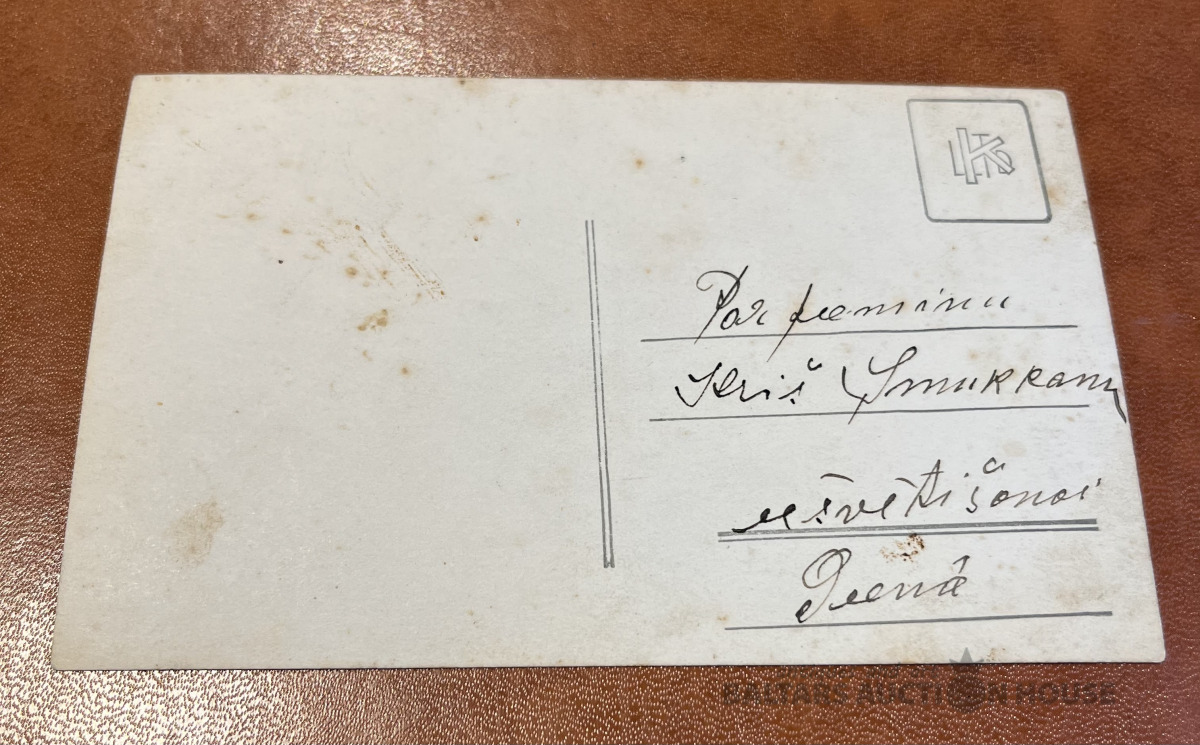 Par piemiņu
Kriš Smukkam
iešvētīšanai
Dienā
BALTARS AUCTION HOUSE